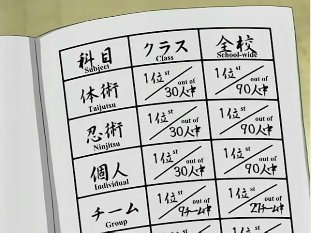 科目
Subject
クラス
Class
全校
School-wide
体術
Taijutsu
1位 st
out of
30人中
1位 st
out of
90人中
忍術
Ninjitsu
1位 st
out of
30人中
1位 st
out of
90人中
個人
Individual
1位 st
out of
30人中
1位 st
out of
90人中
チーム
Group
1位 st
out of
9チーム中
1位 st
out of
27チーム中